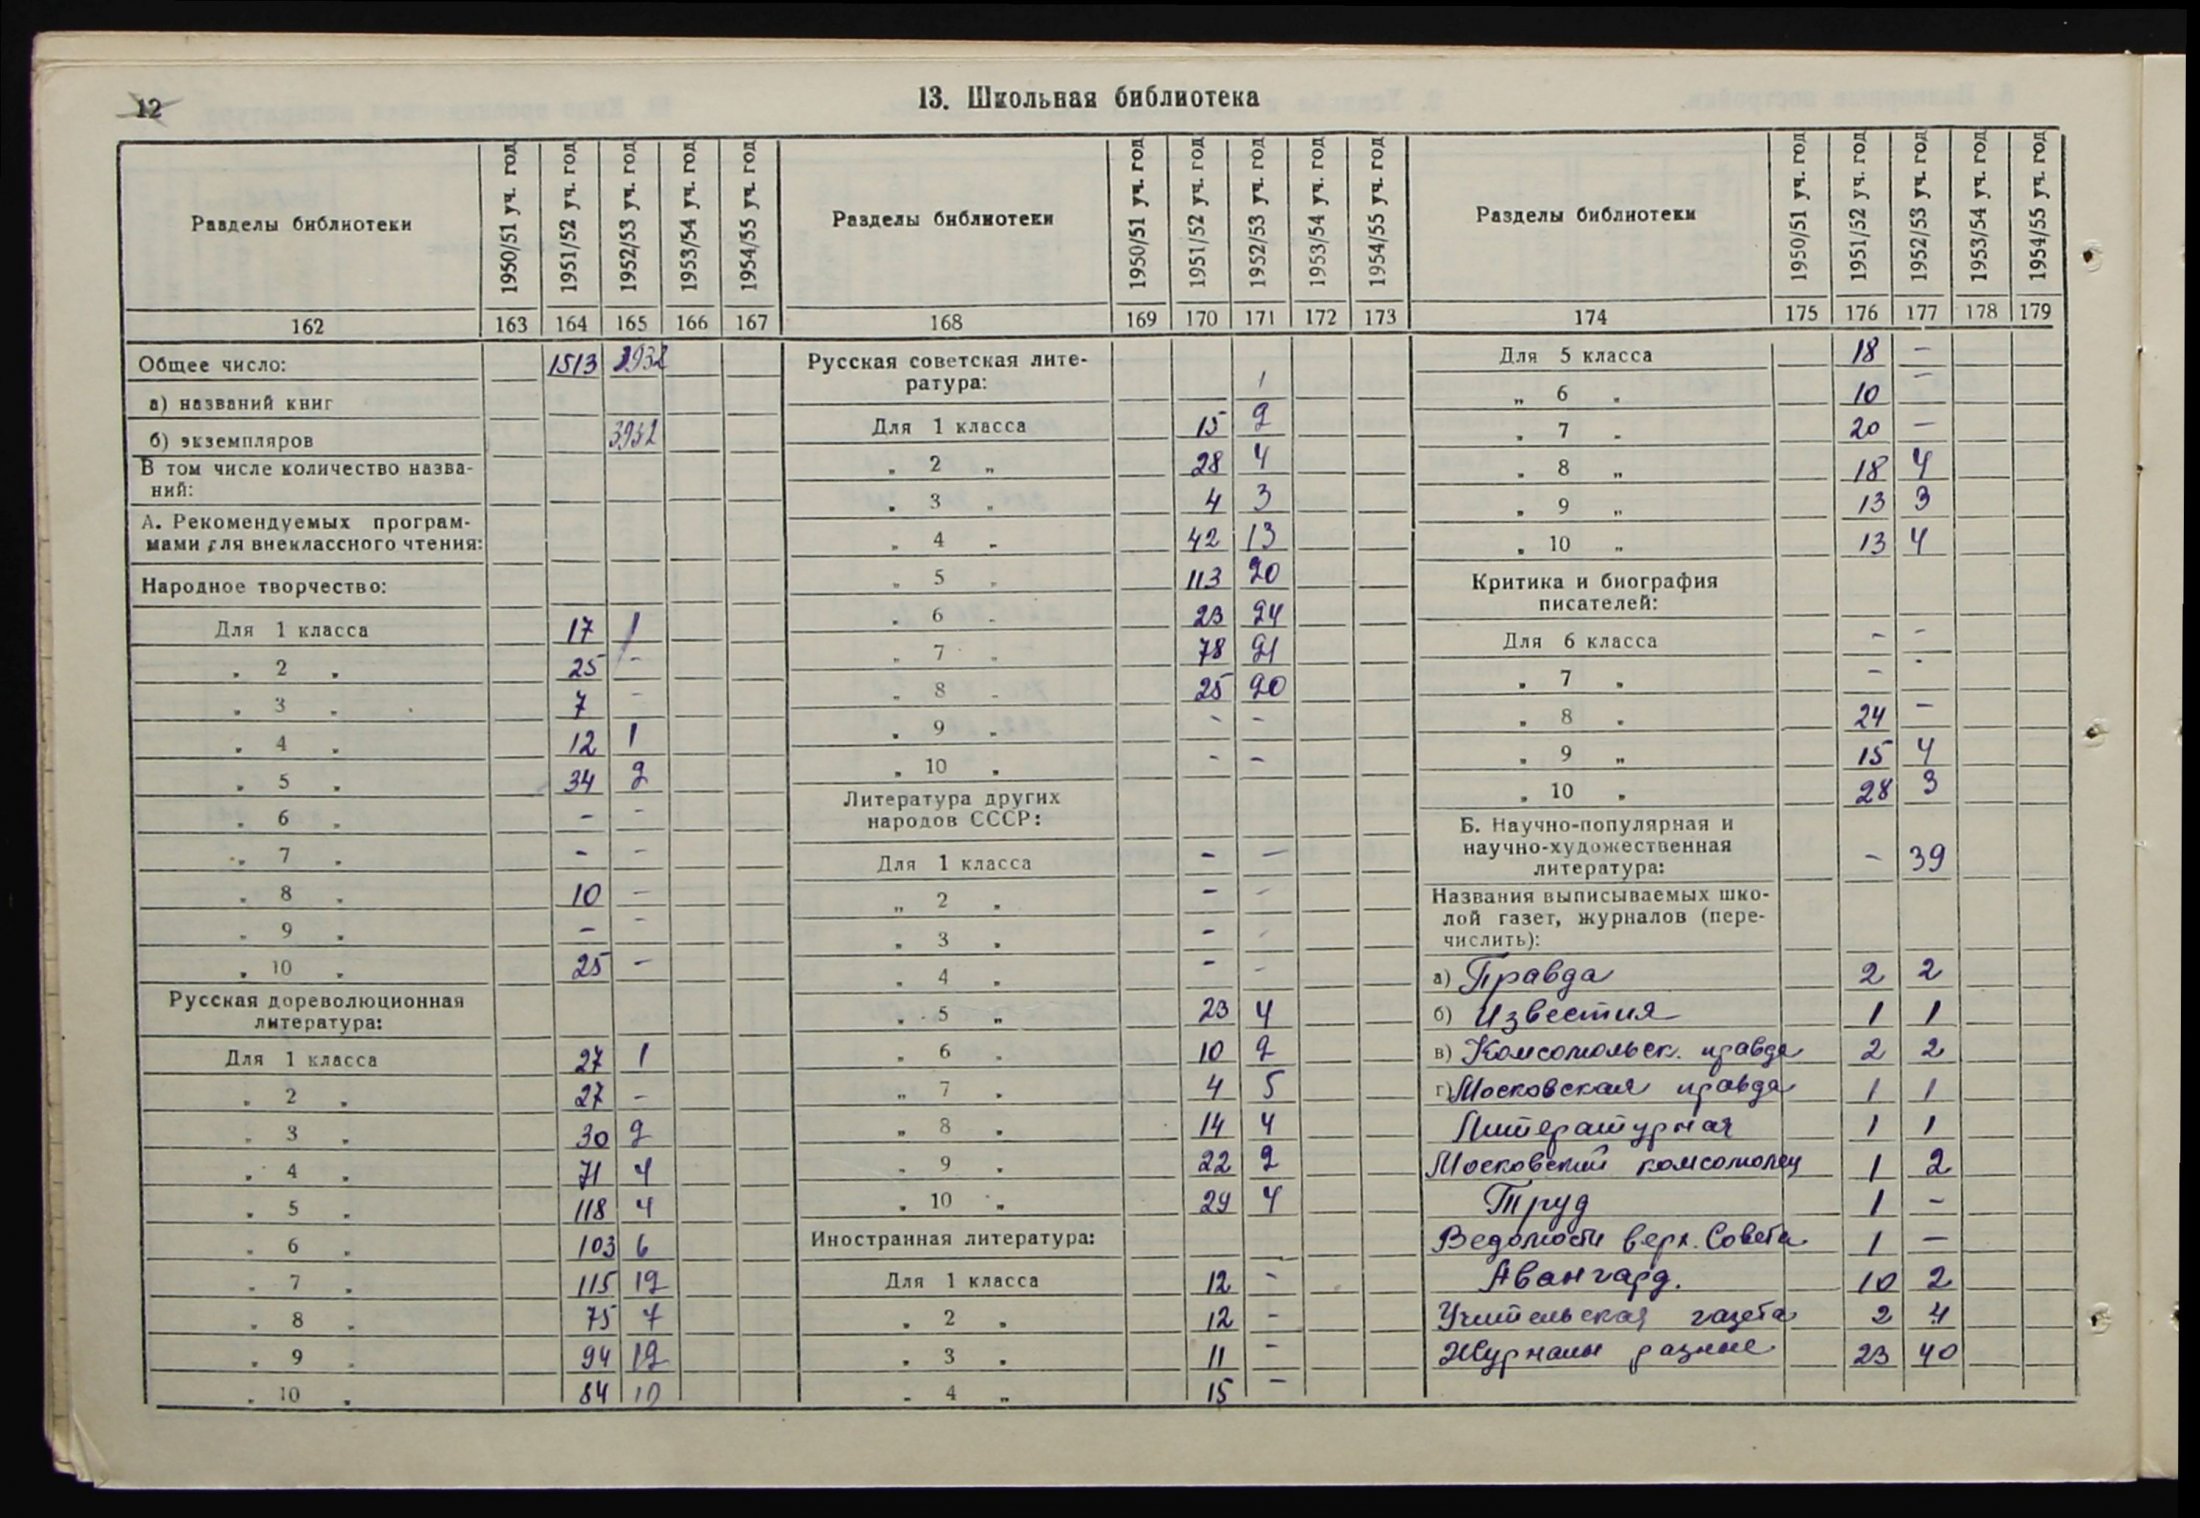 12
13. Школьная библиотека
Разделы библиотеки 1950/51 уч. год 1951/52 уч. год 1952/53 уч. год 1953/54 уч. год 1954/55 уч. год
162 163 164 165 166 167
Общее число: 1513
а) названий книг
б) экземпляров 3932
В том числе количество назва-
ний:
А. Рекомендуемых програм-
мами для внеклассного чтения:
Народное творчество:
Для 1 класса 17 1
„ 2 „ 25 -
„ 3 „ 7 -
„ 4 „ 12 1
„ 5 „ 34 2
„ 6 „ - -
„ 7 „ - -
„ 8 „ 10 -
„ 9 „ - -
„ 10 „ 25 -
Русская дореволюционная
литература:
Для 1 класса 27 1
„ 2 „ 27 -
„ 3 „ 30 2
„ 4 „ 71 4
„ 5 „ 118 4
„ 6 „ 103 6
„ 7 „ 115 12
„ 8 „ 75 7
„ 9 „ 94 12
„ 10 „ 84 10
Разделы библиотеки 1950/51 уч. год 1951/52 уч. год 1952/53 уч. год 1953/54 уч. год 1954/55 уч. год
168 169 170 171 172 173
Русская советская лите-
ратура: 1
Для 1 класса 15 2
„ 2 „ 28 4
„ 3 „ 4 3
„ 4 „ 42 13
„ 5 „ 113 20
„ 6 „ 23 24
„ 7 „ 78 21
„ 8 „ 25 20
„ 9 „ - -
„ 10 „ - -
Литература других
народов СССР:
Для 1 класса - -
„ 2 „ - -
„ 3 „ - -
„ 4 „ - -
„ 5 „ 23 4
„ 6 „ 10 2
„ 7 „ 4 5
„ 8 „ 14 4
„ 9 „ 22 2
„ 10 „ 29 4
Иностранная литература:
Для 1 класса 12 -
„ 2 „ 12 -
„ 3 „ 11 -
„ 4 „ 15 -
Разделы библиотеки 1950/51 уч. год 1951/52 уч. год 1952/53 уч. год 1953/54 уч. год 1954/55 уч. год
174 175 176 177 178 179
Для 5 класса 18 -
„ 6 „ 10 -
„ 7 „ 20 -
„ 8 „ 18 4
„ 9 „ 13 3
„ 10 „ 13 4
Критика и биография
писателей:
Для 6 класса - -
„ 7 „ - -
„ 8 „ 24 -
„ 9 „ 15 4
„ 10 „ 28 3
Б. Научно-популярная и
научно-художественная
литература: - 39
Названия выписываемых шко-
лой газет, журналов (пере-
числить):
а) Правда 2 2
б) Известия 1 1
в) Комсомольск. правда 2 2
г) Московская правда 1 1
Литературная 1 1
Московский комсомолец 1 2
Труд 1 -
Ведомости верх. Совета 1 -
Авангард. 10 2
Учительская газета 2 4
Журналы разные 23 40